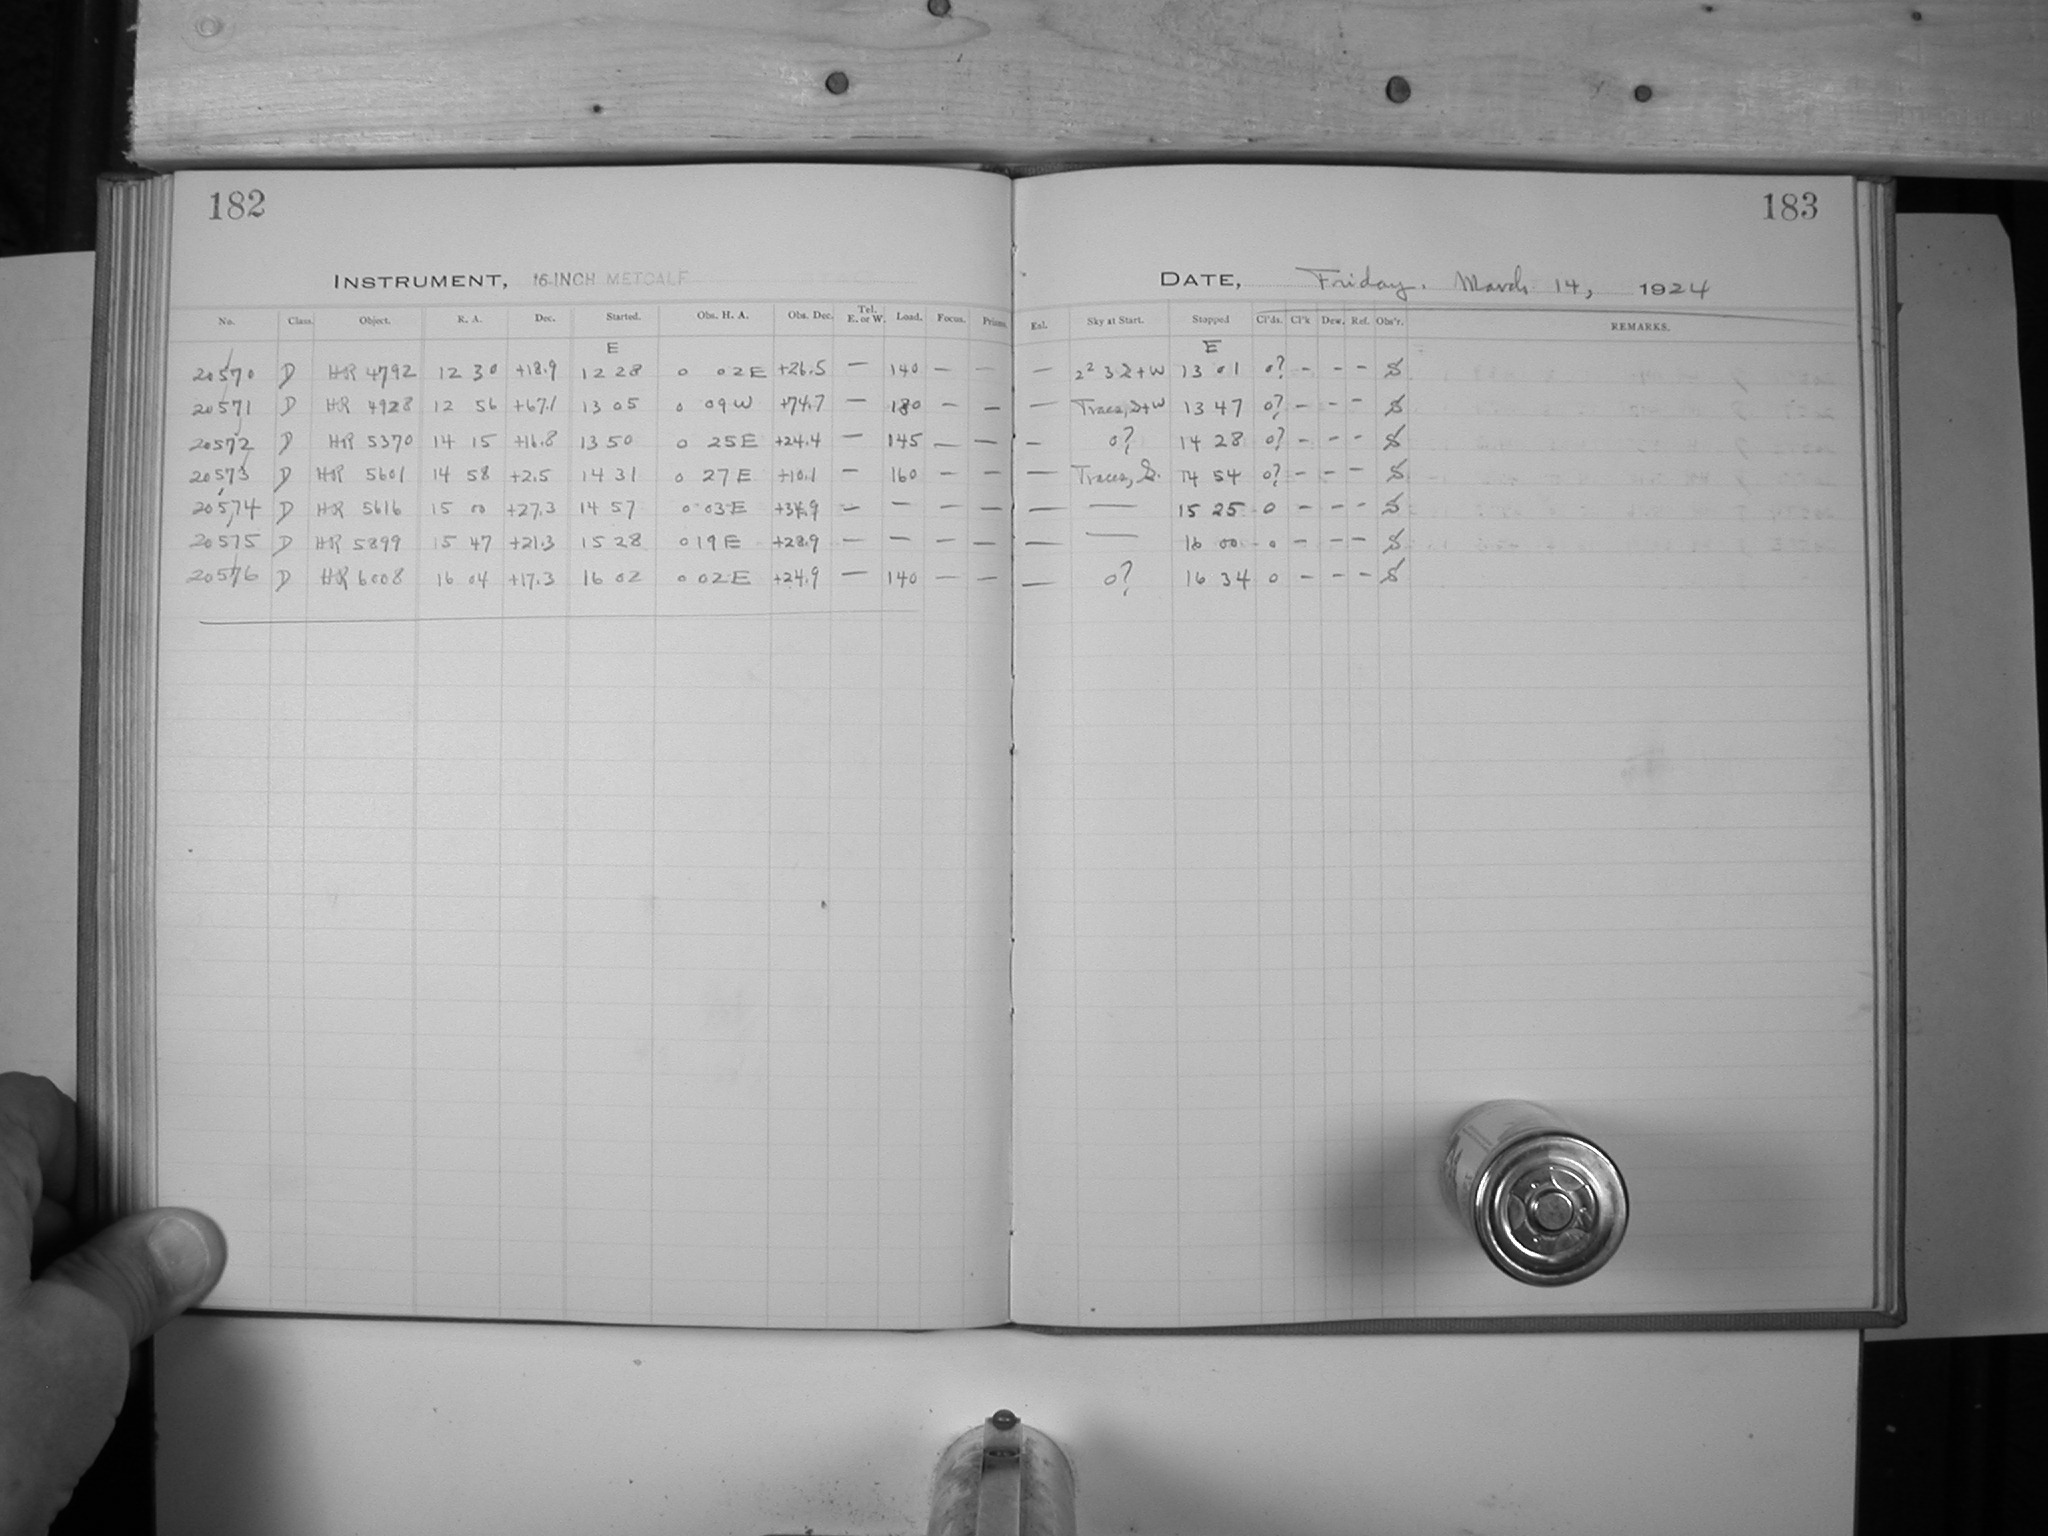 182
183
INSTRUMENT, 16-INCH METCALF
DATE, Friday, March 14, 1924
No. Class. Object. R. A. Dec. Started. Obs. H. A. Obs. Dec. Tel. E. or W. Load. Focus. Prisms. Exl. Sky at Start. Stopped Cl'ds. Cl'k Dew. Ref. Obs'r. REMARKS.
E E
20570 D HR 4792 12 30 +18.9 12 28 0 02 E +26.5 — 140 — — — 13 01 0? – – – S
20571 D HR 4928 12 56 +67.1 13 05 0 09 W +74.7 — 180 — — — Traces, S+W 13 47 0? – – – S
20572 D HR 5370 14 15 +16.8 13 50 0 25 E +24.4 — 145 — — — 0? 14 28 0? – – – S
20573 D HR 5601 14 58 +2.5 14 31 0 27 E +10.1 — 160 — — — Traces, S. 14 54 0? – – – S
20574 D HR 5616 15 00 +27.3 14 57 0 03 E +34.9 — — — — — — 15 25 0 – – – S
20575 D HR 5899 15 47 +21.3 15 28 0 19 E +28.9 — — — — — — 16 00 0 – – – S
20576 D HR 6008 16 04 +17.3 16 02 0 02 E +24.9 — 140 — — — 0? 16 34 0 – – – S